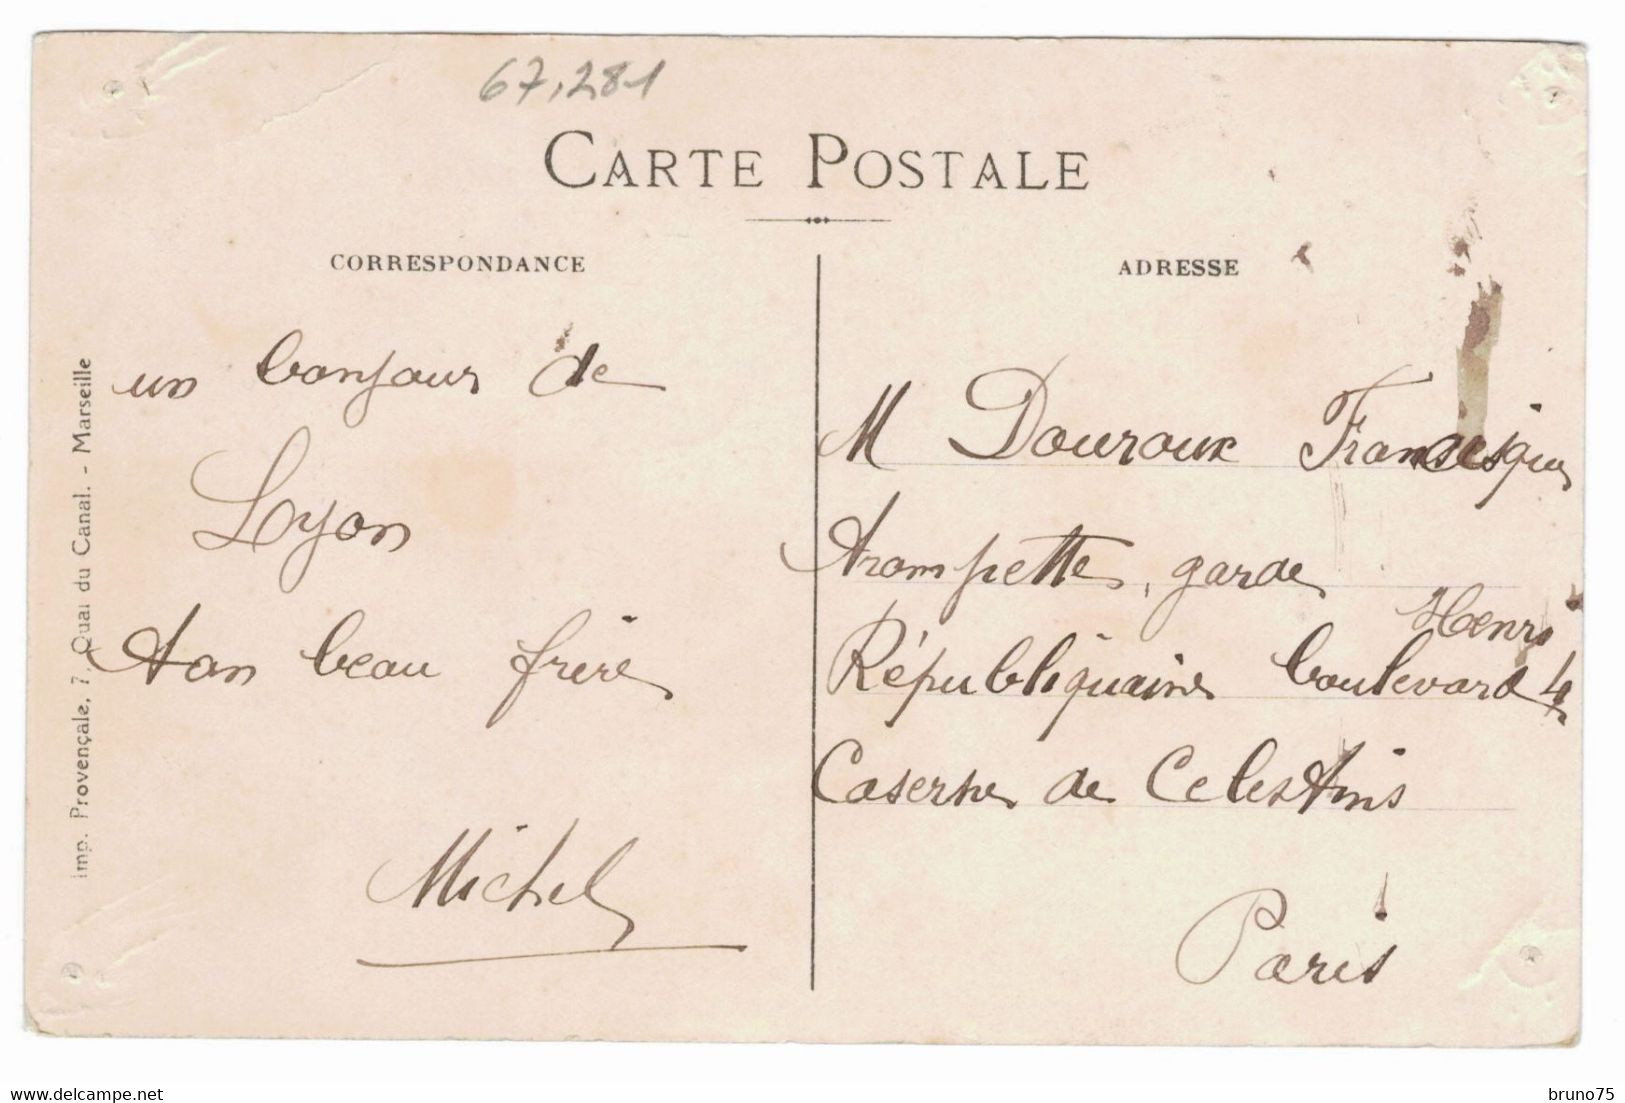 67,281
CARTE POSTALE
CORRESPONDANCE
ADRESSE
un bonjour de
Lyon
ton beau frère
Michel
M Douroux Francisque
trompette, garde
Républiquaine boulevard Henri 4
Caserne de Celestins
Paris
Imp. Provençale, 7, Quai du Canal. - Marseille
bruno75